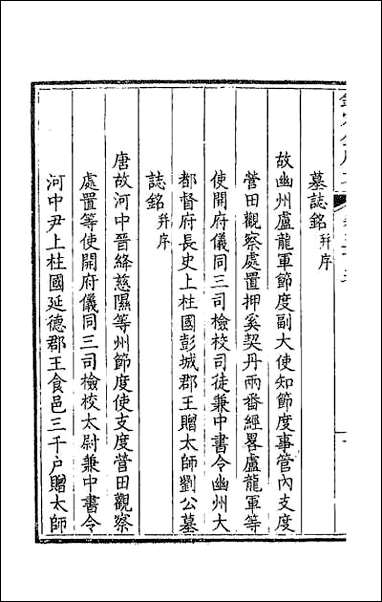 墓誌銘并序
故幽州盧龍軍節度副大使知節度事管內支度
營田觀察處置押奚契丹兩番經畧盧龍軍等
使開府儀同三司檢校司徒兼中書令幽州大
都督府長史上柱國彭城郡王贈太師劉公墓
誌銘并序
唐故河中晉絳慈隰等州節度使支度營田觀察
處置等使開府儀同三司檢校太尉兼中書令
河中尹上柱國延德郡王食邑三千户贈太師